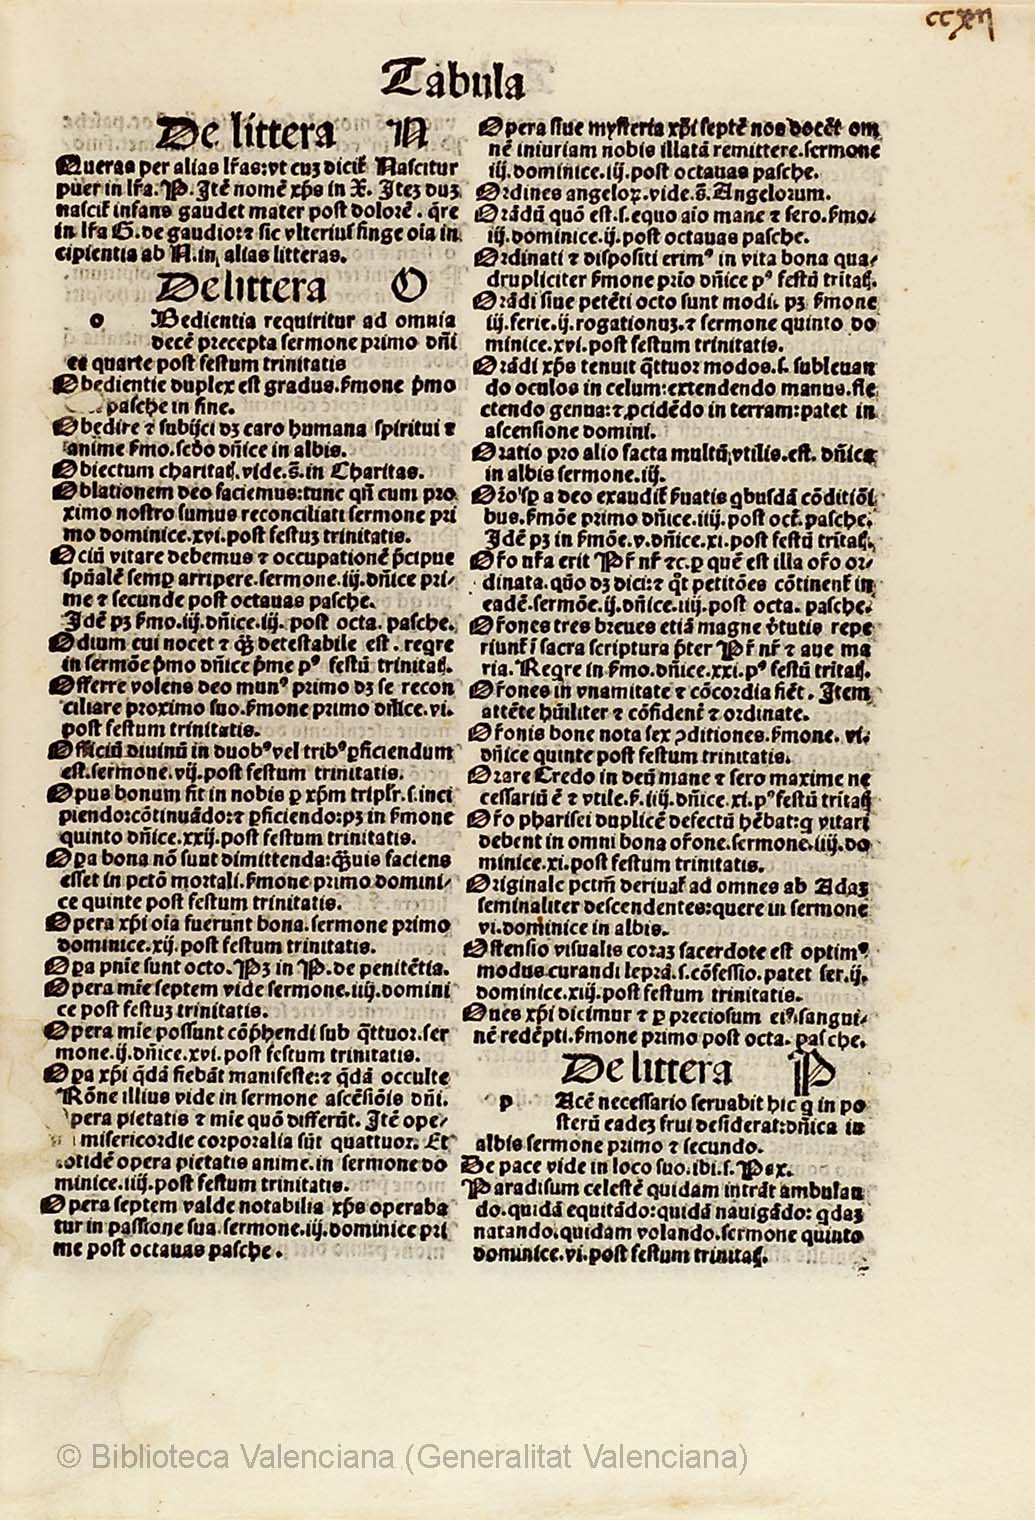 ccxvii
Tabula
De littera N
Queras per alias lr̃as: vt cuȝ dicit̃ Nascitur
puer in lr̃a. P. Itẽ nomẽ xp̃s in X. Iteȝ duȝ
nascit̃ infans gaudet mater post dolorẽ. q̃re
in lr̃a G. de gaudio: ⁊ sic vlterius finge oĩa in
cipientia ab N. in alias litteras.
De littera O
o Bedientia requiritur ad omnia
decẽ precepta sermone primo dñi
ce quarte post festum trinitatis
Obedientie duplex est gradus. ẜmone p̃mo
pasche in fine.
Obedire ⁊ subijci dȝ caro humana spiritui ⁊
anime ẜmo. scðo dñice in albis.
Obiectum charitaꝭ. vide. s̃. in Charitas.
Oblationem deo faciemus: tunc qñ cum pro
ximo nostro sumus reconciliati sermone pri
mo dominice. xvi. post festuȝ trinitatis.
Ociũ vitare debemus ⁊ occupationẽ p̃cipue
spũalẽ semꝑ arripere. sermone. iij. dñice pri⸗
me ⁊ secunde post octauas pasche.
Idẽ pȝ ẜmo. iij. dñice. iij. post octa. pasche.
Odium cui nocet ⁊ qȝ̃ detestabile est. reqre
in sermõe p̃mo dñice p̃me pꝰ festũ trinitaꝭ.
Offerre volens deo munꝰ primo dȝ se recon
ciliare proximo suo. ẜmone primo dñice. vi.
post festum trinitatis.
Officiũ diuinũ in duobꝰ vel tribꝰ ꝑficiendum
est. sermone. vij. post festum trinitatis.
Opus bonum fit in nobis ꝑ xp̃m tripl̃r. s. inci
piendo: cõtinuãdo: ⁊ ꝑficiendo: pȝ in ẜmone
quinto dñice. xxij. post festum trinitatis.
Oꝑa bona nõ sunt dimittenda: qȝ̃uis faciens
esset in pctõ mortali. ẜmone primo domini⸗
ce quinte post festum trinitatis.
Opera xp̃i oĩa fuerunt bona. sermone primo
dominice. xij. post festum trinitatis.
Oꝑa pnĩe sunt octo. Pȝ in P. de penitẽtia.
Opera mĩe septem vide sermone. iiij. domini
ce post festuȝ trinitatis.
Opera mĩe possunt cõp̃hendi sub q̃ttuor. ser
mone. ij. dñice. xvi. post festum trinitatis.
Oꝑa xp̃i q̃dã fiebãt manifeste: ⁊ q̃dã occulte
Rõne illius vide in sermone ascẽsiõis dñi.
pera pietatis ⁊ mĩe quõ differũt. Itẽ ope⸗
misericordie corporalia sũt quattuor. Et
totidẽ opera pietatis anime. in sermone do
minice. iiij. post festum trinitatis.
Opera septem valde notabilia xp̃s operaba
tur in passione sua. sermone. iij. dominice pri
me post octauas pasche.
Opera siue mysteria xp̃i septẽ nos docẽt om
nẽ iniuriam nobis illatã remittere. sermone
iij. dominice. iij. post octauas pasche.
Ordines angeloꝝ. vide. s̃. Angelorum.
Orãdũ quõ est. s. equo aĩo mane ⁊ sero. ẜmo⸗
iij. dominice. ij. post octauas pasche.
Ordinati ⁊ dispositi erimꝰ in vita bona qua⸗
drupliciter ẜmone prĩo dñice pꝰ festũ tritaꝭ.
Orãdi siue petẽti octo sunt modi. pȝ ẜmone
iij. ferie. ij. rogationuȝ. ⁊ sermone quinto do
minice. xvi. post festum trinitatis.
Orãdi xp̃s tenuit q̃ttuor modos. s. subleuan
do oculos in celum: extendendo manus. fle
ctendo genua: ⁊ ꝓcidẽdo in terram: patet in
ascensione domini.
Oratio pro alio facta multũ vtilis. est. dñice
in albis sermone. iij.
Or̃o sꝑ a deo exaudit̃ ẜuatis qbusdã cõditiõi
bus. ẜmõe primo dñice. iiij. post oct. pasche.
Idẽ pȝ in ẜmõe. v. dñice. xi. post festũ trĩtaꝭ.
Or̃o nr̃a erit Pr̃ nr̃ ⁊c. ꝑ quẽ est illa or̃o or⸗
dinata. quõ dȝ dici: ⁊ q̃t petitões cõtinent̃ in
eadẽ. sermõe. ij. dñice. iiij. post octa. pasche.
Or̃ones tres breues etiã magne v̓tutis repe
riunt̃ ĩ sacra scriptura p̃ter Pr̃ nr̃ ⁊ aue ma
ria. Reqre in ẜmo. dñice. xxi. pꝰ festũ tritaꝭ.
Or̃ones in vnamitate ⁊ cõcordia fiẽt. Item
attẽte hũiliter ⁊ cõfident̃ ⁊ ordinate.
Or̃onis bone nota sex ꝯditiones. ẜmone. vi.
dñice quinte post festum trinitatis.
Orare Credo in deũ mane ⁊ sero maxime ne
cessariũ ẽ ⁊ vtile. ẜ. iiij. dñice. xi. pꝰ festũ tritaꝭ
Or̃o pharisei duplicẽ defectũ hẽbat: q vitari
debent in omni bona or̃one. sermone. iiij. do
minice. xi. post festum trinitatis.
Originale pctm̃ deriuat̃ ad omnes ab Adaȝ
seminaliter descendentes: quere in sermone
vi. dominice in albis.
Ostensio visualis coraȝ sacerdote est optimꝰ
modus curandi leprã. s. cõfessio. patet ser. ij.
dominice. xiij. post festum trinitatis.
Oues xp̃i dicimur ⁊ ꝑ preciosum eiꝰ sangui⸗
nẽ redẽpti. ẜmone primo post octa. pasche.
De littera P
p Acẽ necessario seruabit hic q in po
sterũ eadeȝ frui desiderat: dñica in
albis sermone primo ⁊ secundo.
De pace vide in loco suo. ibi. s. Pax.
Paradisum celestẽ quidam intrãt ambulan
do. quidã equitãdo: quidã nauigãdo: qdaȝ
natando. quidam volando. sermone quinto
dominice. vi. post festum trinitaꝭ.
© Biblioteca Valenciana (Generalitat Valenciana)